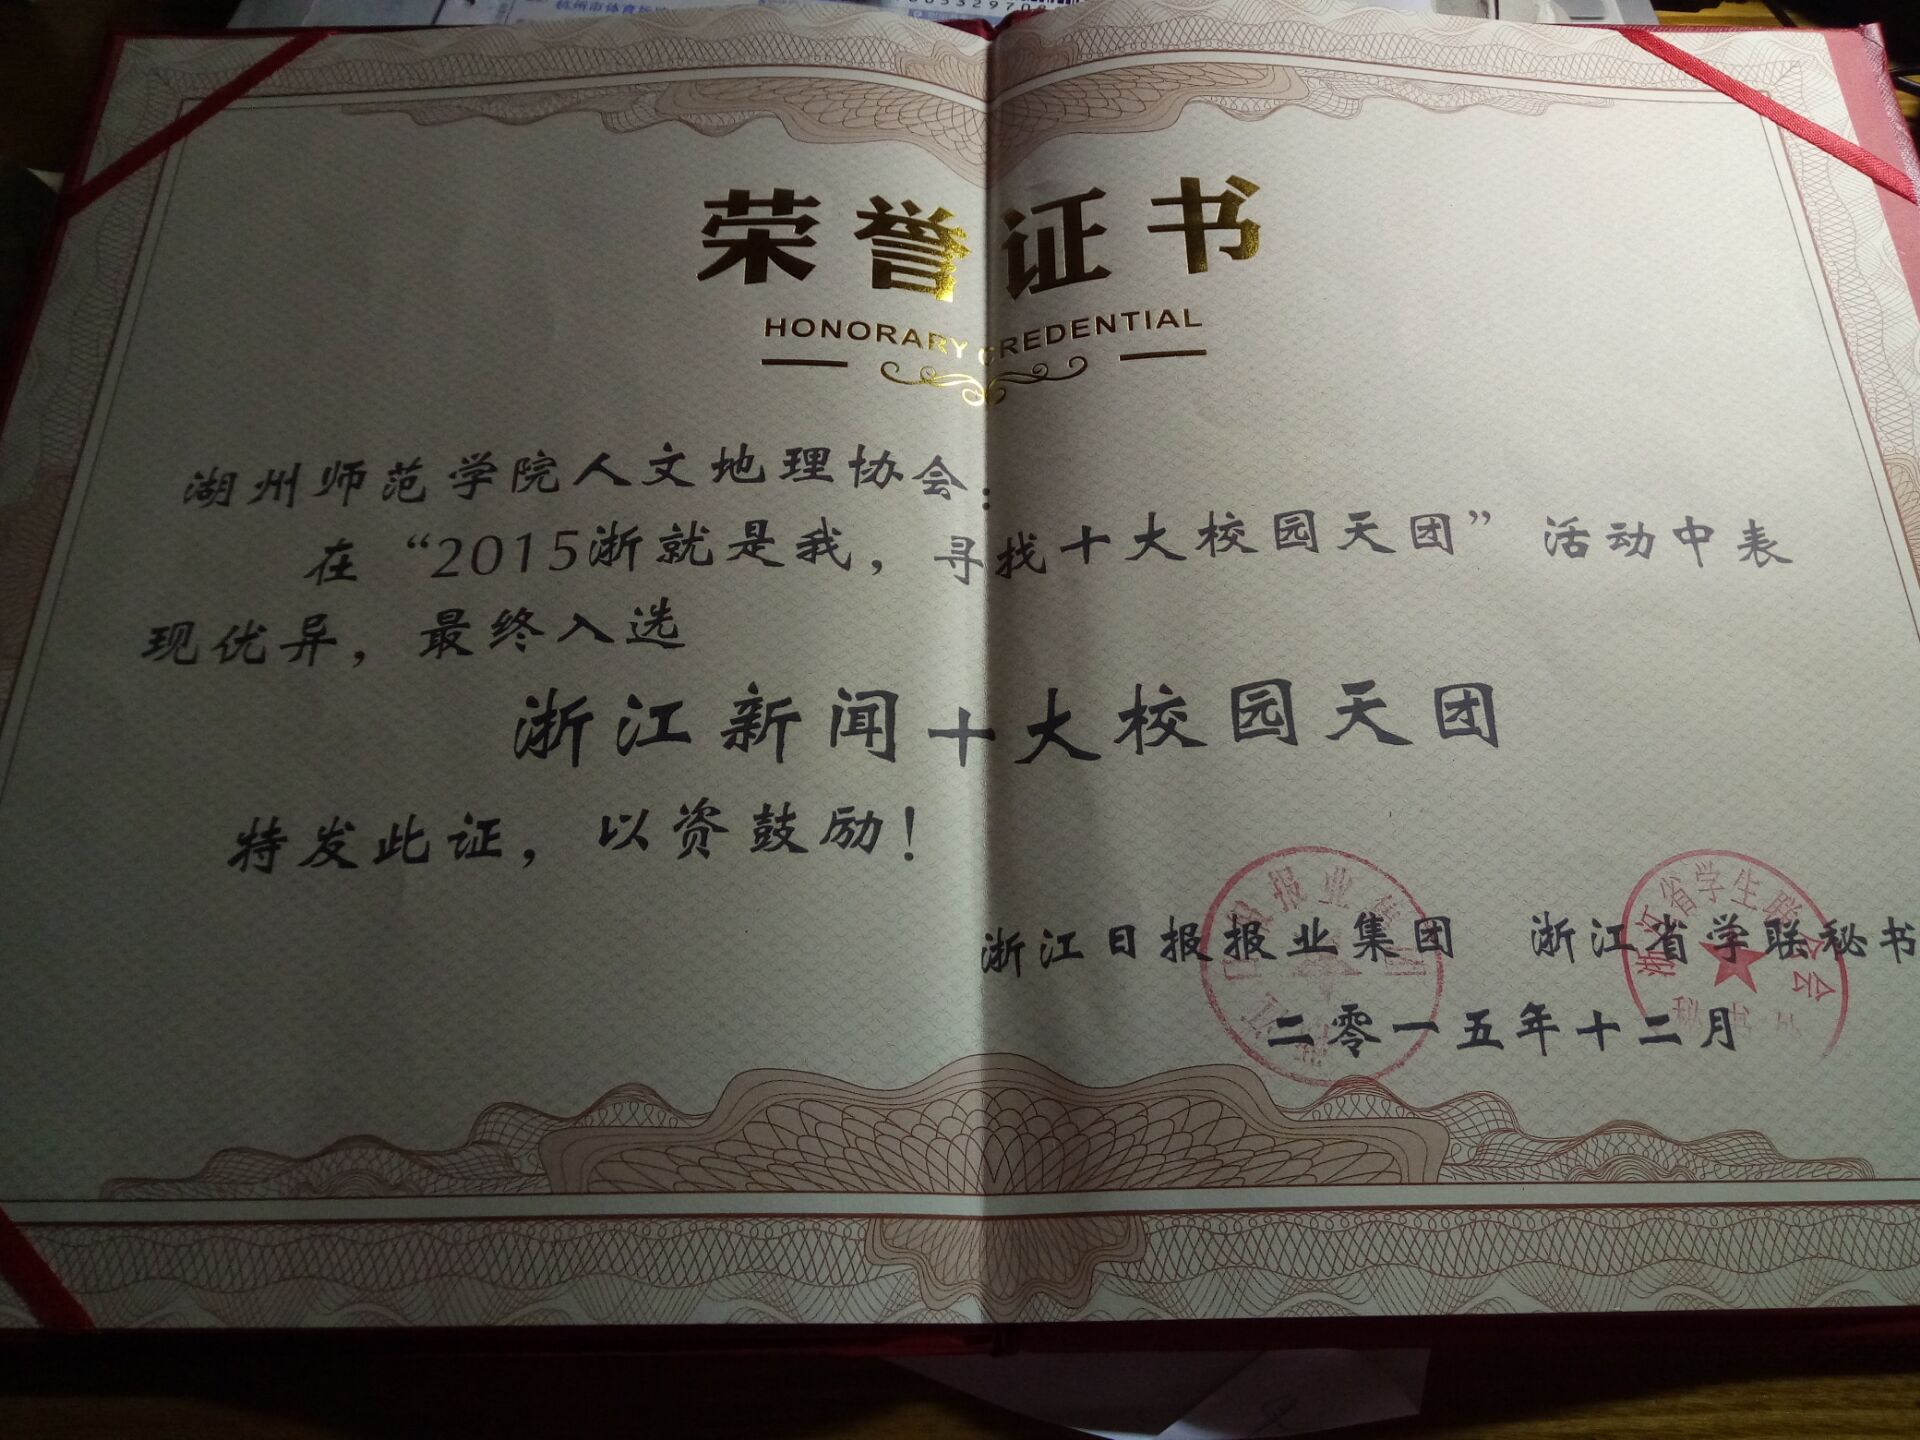 荣誉证书
HONORARY CREDENTIAL
湖州师范学院人文地理协会：
在“2015浙就是我，寻找十大校园天团”活动中表
现优异，最终入选
浙江新闻十大校园天团
特发此证，以资鼓励！
浙江日报报业集团 浙江省学联秘书
二零一五年十二月